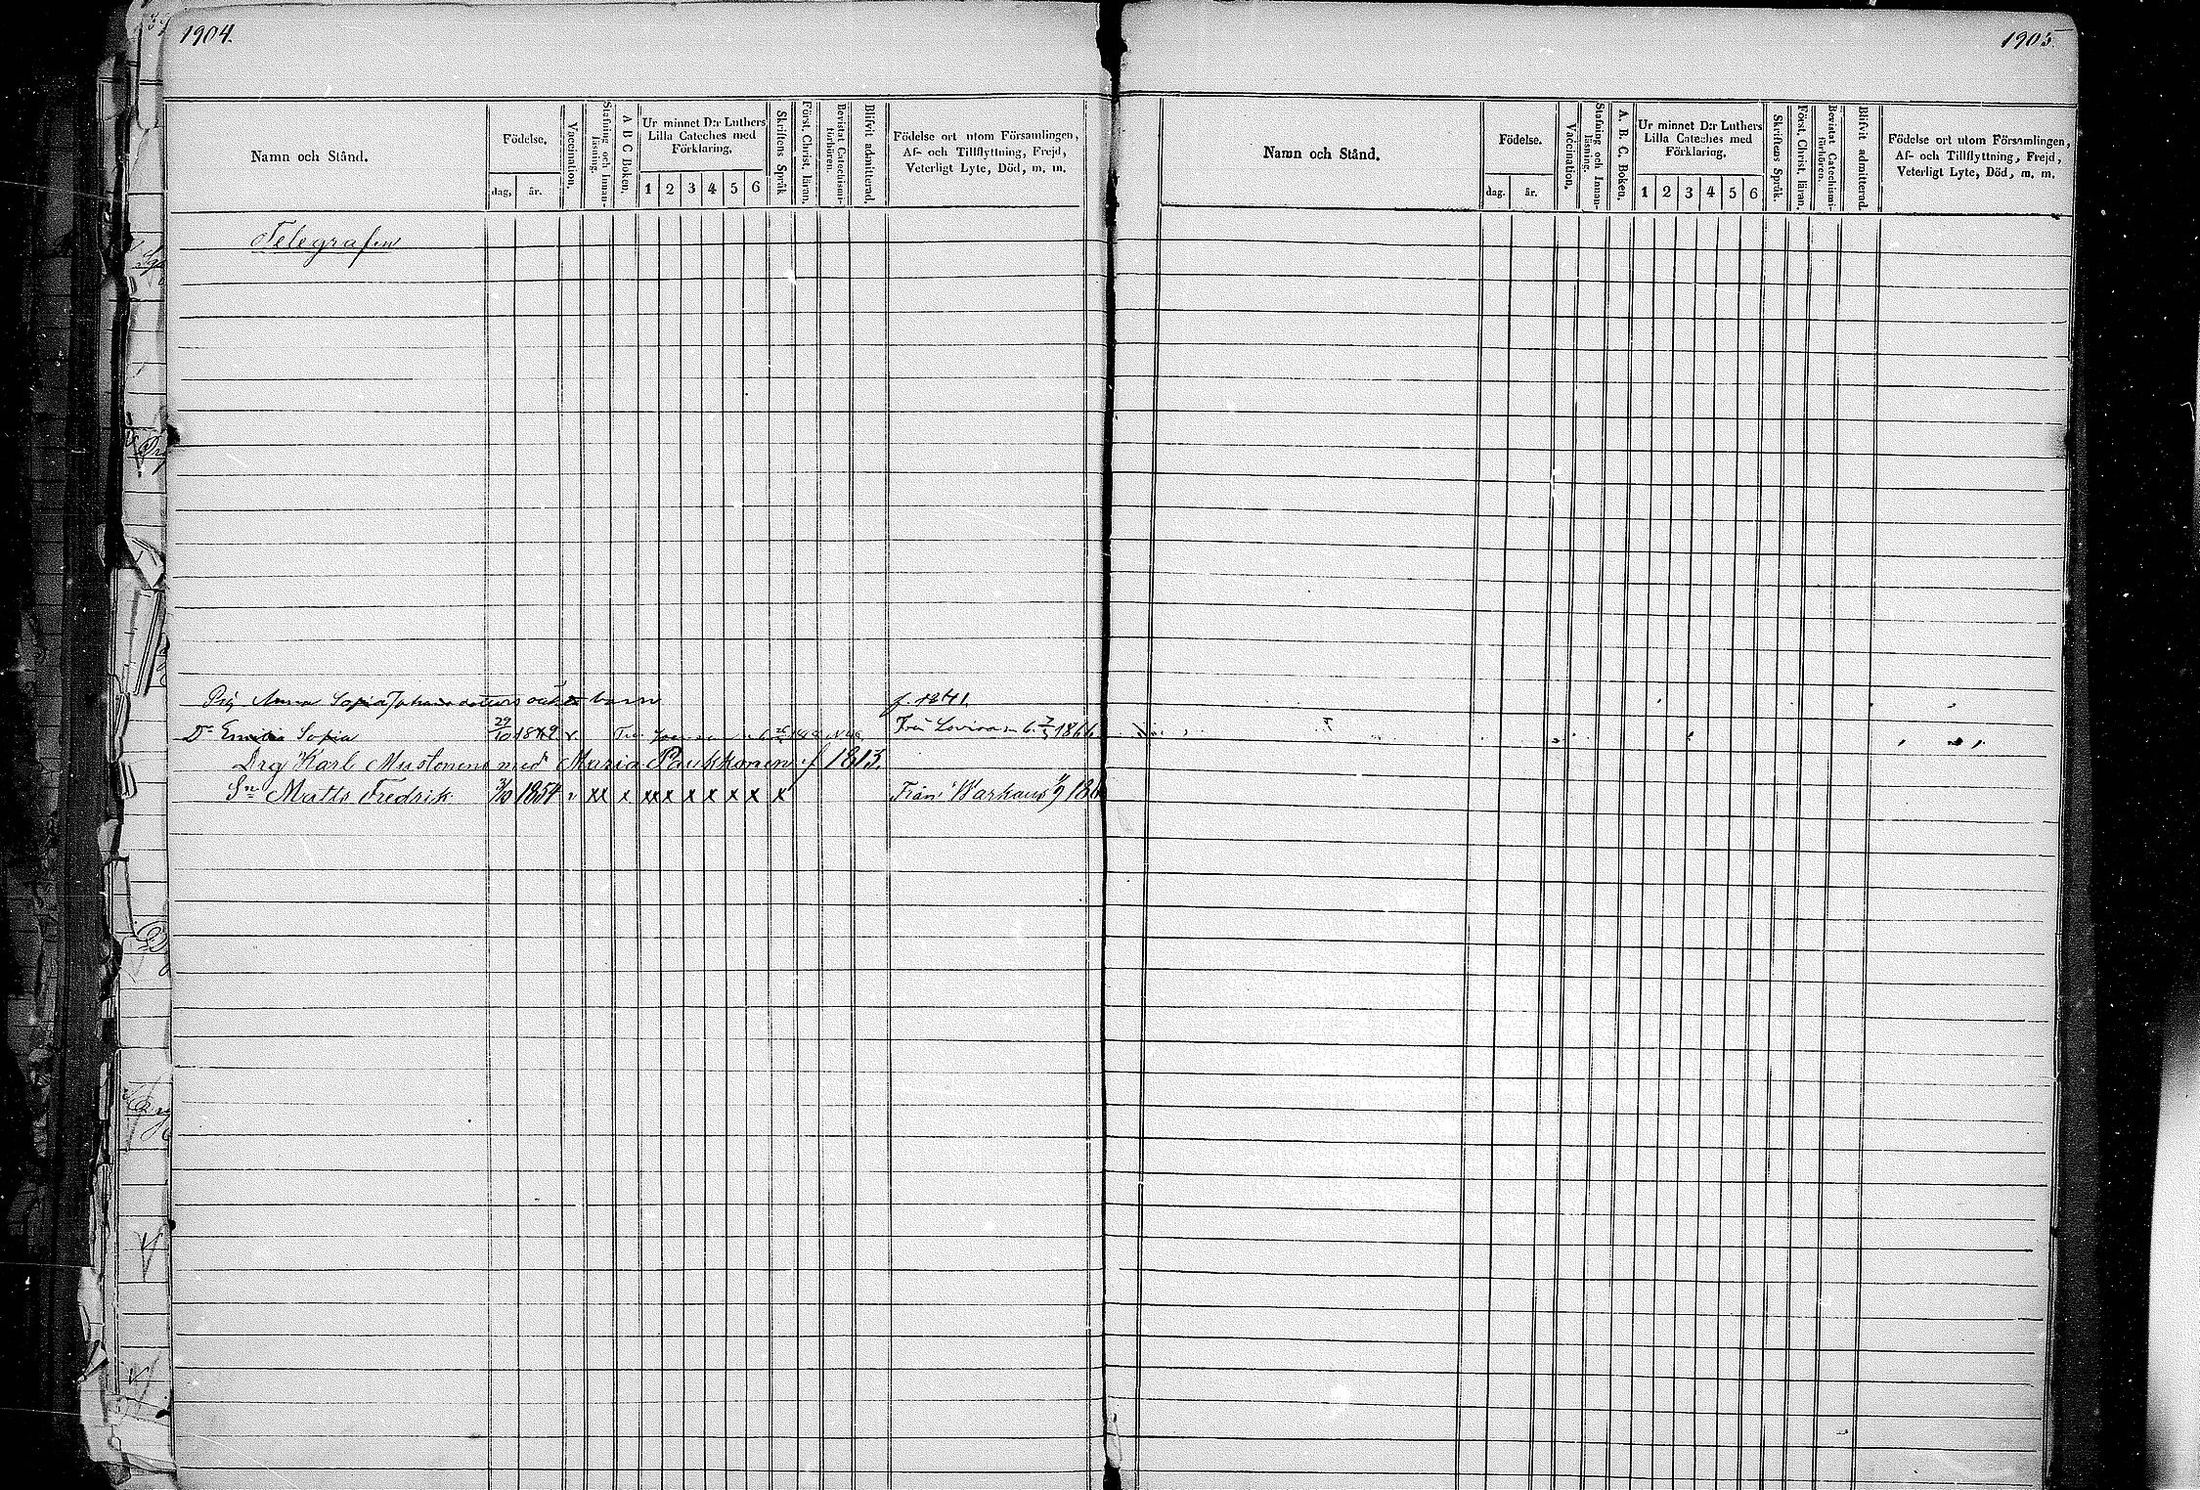 1904.
Namn och Stånd.
Födelse.
dag, år.
Vaccination.
Stafning och Innanläsning.
A B C Boken.
Ur minnet D:r Luthers Lilla Cateches med Förklaring.
1 2 3 4 5 6
Skriftens Språk
Först. Christ. läran.
Bevistat Catechismiförhören.
Blifvit admitterad.
Födelse ort utom Församlingen,
Af- och Tillflyttning, Frejd,
Veterligt Lyte, Död, m. m.
Telegrafen
Pig Anna Sofia Johansdotters och barn f. 1841.
Dr Sofia 29/10 1849 v. Från Lovisa 1866
Drg Karl Mustonens med Maria Paukkonen f 1813.
Sn Matts Fredrik 1854 v xx x xx x x x x x x Från Warkaus
1905
Namn och Stånd.
Födelse.
dag. år.
Vaccination.
Stafning och Innanläsning.
A. B. C. Boken.
Ur minnet D:r Luthers Lilla Cateches med Förklaring.
1 2 3 4 5 6
Skriftens Språk.
Först. Christ. läran.
Bevistat Catechismiförhören.
Blifvit admitterad.
Födelse ort utom Församlingen,
Af- och Tillflyttning, Frejd,
Veterligt Lyte, Död, m. m.